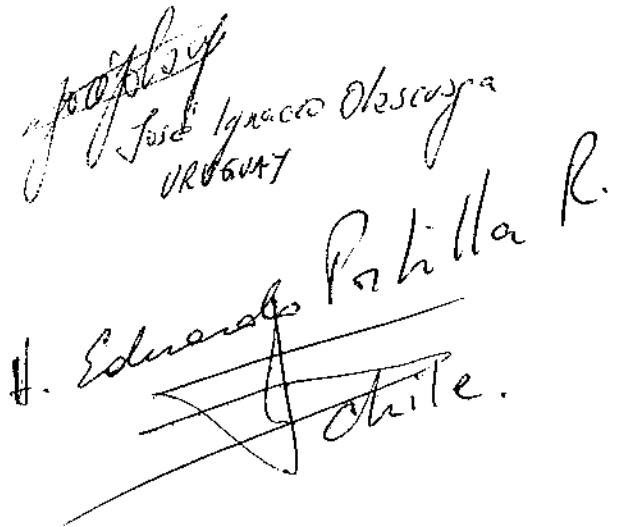 José Ignacio Olascuaga
URUGUAY
H. Eduardo Portilla R.
Chile.